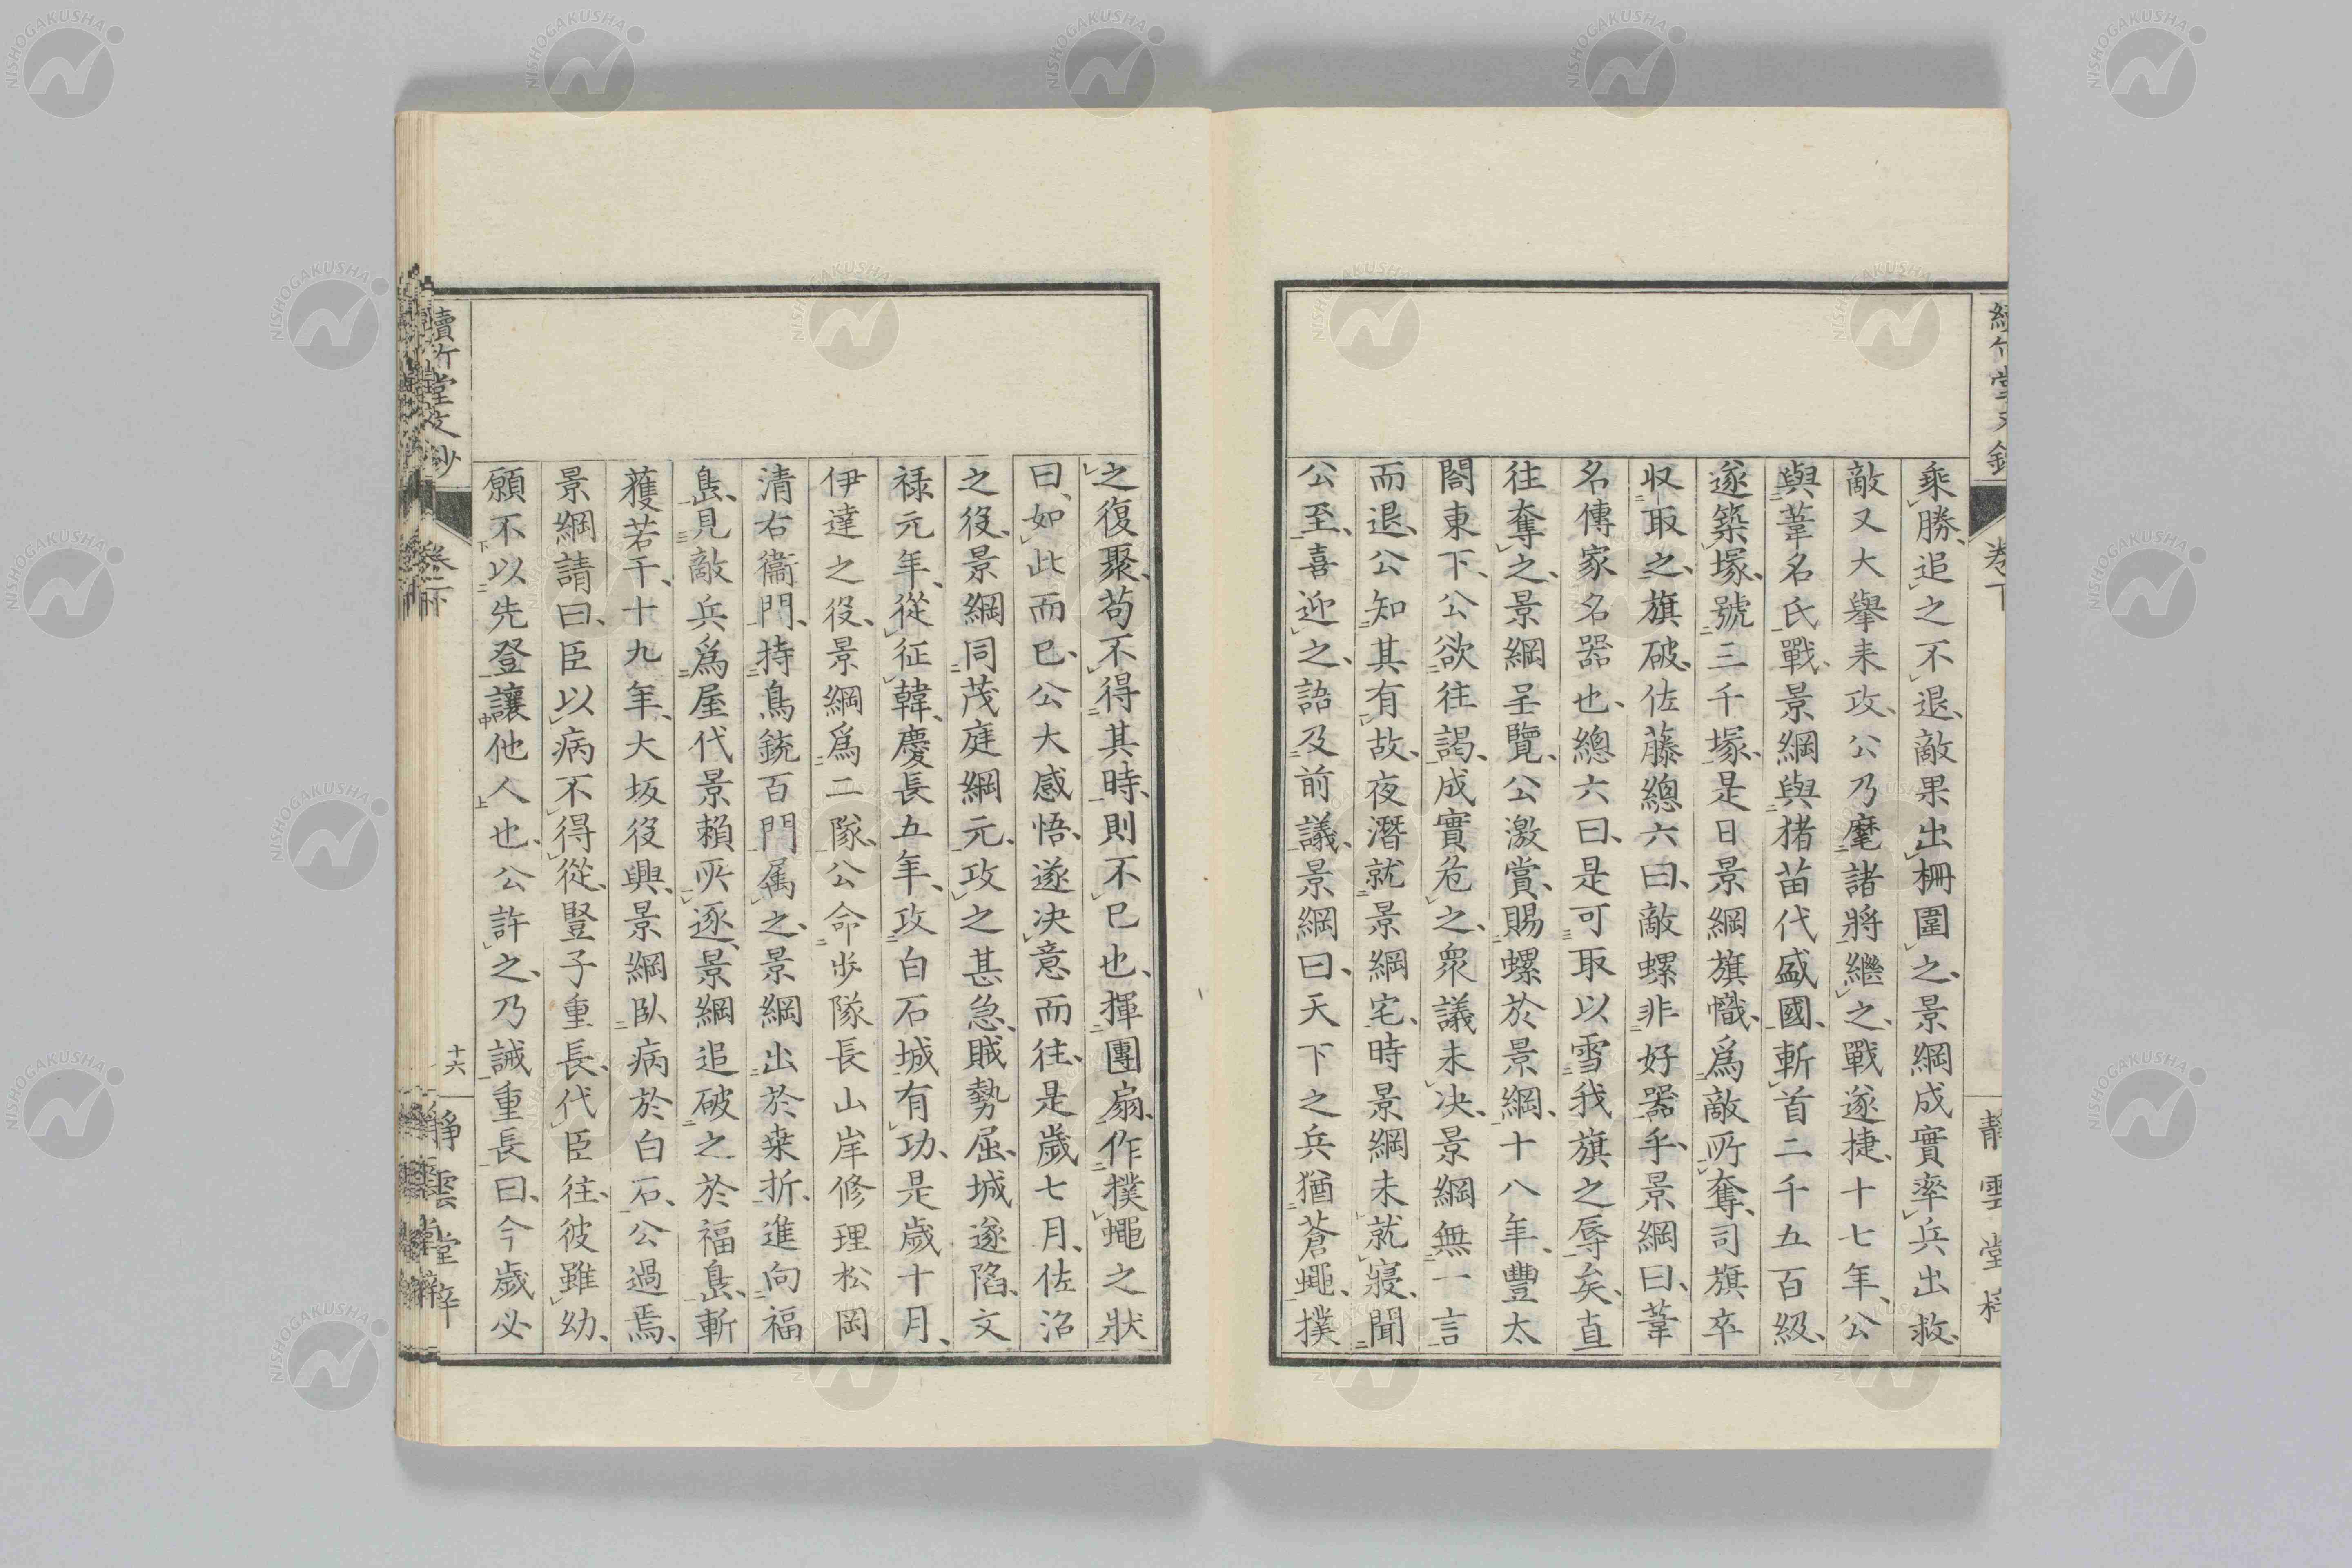 乘勝、追之不退、敵果出柵圍之、景綱成實率兵出救、
敵又大擧来攻、公乃麾諸將繼之、戰遂捷、十七年、公
與葦名氏戰、景綱與猪苗代盛國、斬首二千五百級、
遂築塚、號三千塚、是日景綱旗幟、爲敵所奪、司旗卒
収取之、旗破、佐藤總六曰、敵螺非好器乎、景綱曰、葦
名傳家名器也、總六曰、是可取以雪我旗之辱矣、直
往奪之、景綱呈覽、公激賞、賜螺於景綱、十八年、豐太
閤東下、公欲往謁、成實危之、衆議未决、景綱無一言
而退、公知其有故、夜潛就景綱宅、時景綱未就寢、聞
公至、喜迎之、語及前議、景綱曰、天下之兵猶蒼蠅、撲
之復聚、苟不得其時、則不已也、揮團扇、作撲蠅之狀
曰、如此而已、公大感悟、遂决意而往、是歲七月、佐沼
之役、景綱同茂庭綱元、攻之甚急、賊勢屈、城遂陷、文
禄元年、從征韓、慶長五年、攻白石城有功、是歲十月、
伊達之役、景綱爲二隊、公命步隊長山岸修理松岡
清右衞門、持鳥銃百門屬之、景綱出於桒折、進向福
島、見敵兵爲屋代景賴所逐、景綱追破之於福島、斬
獲若干、十九年、大坂役興、景綱臥病於白石、公過焉、
景綱請曰、臣以病不得從、豎子重長、代臣往、彼雖幼、
願不以先登讓他人也、公許之、乃誡重長曰、今歲必
續竹堂文鈔
卷下
十六
靜雲堂梓
卷下
靜雲堂梓
NISHOGAKUSHA